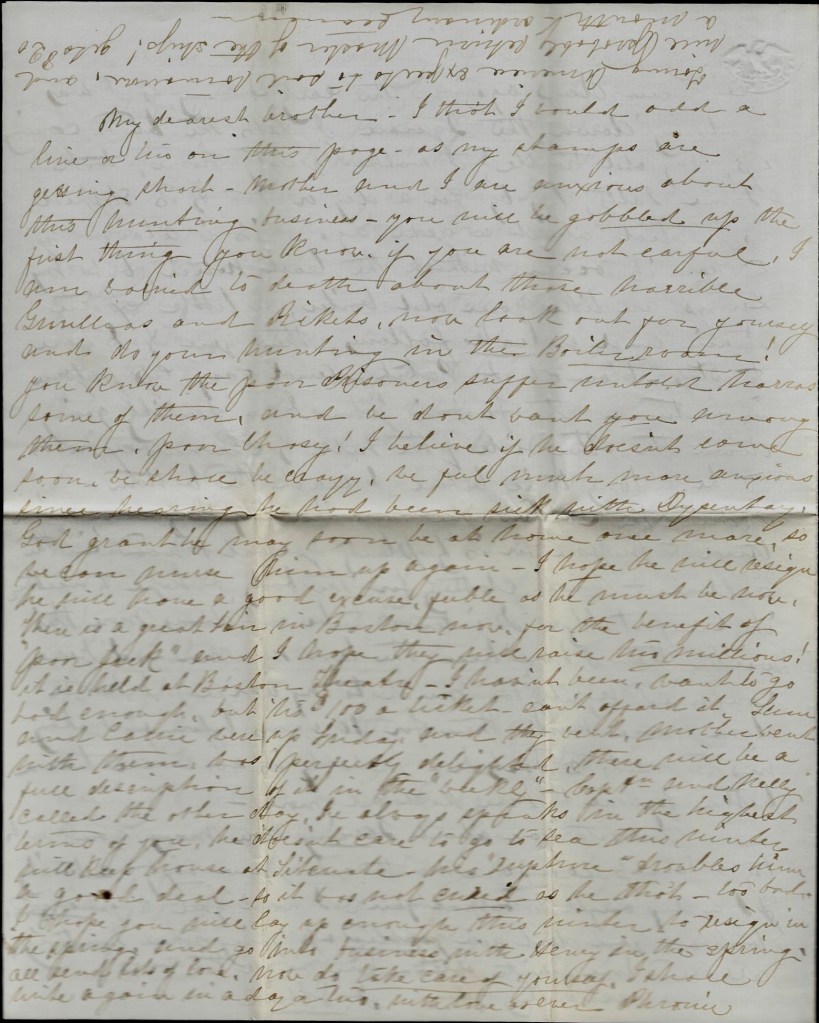 My dearest brother - I thot I would add a
line or two on this page - as my stamps are
getting short - Mother and I are anxious about
this hunting business - you will be gobbled up the
first thing you know, if you are not carful, I
am worried to death about those horrible
Gurillias and Pikets, now look out for yourself
and do your hunting in the Boiler room!
you know the poor Prisoners suffer untold horros
some of them, and we dont want you among
them, poor Chosy! I believe if he doesnt come
soon, we shall be crazy, we feel much more anxious
since hearing he had been sick with Dysentay,
God grant he may soon be at home one more, so
we can nurse him up again - I hope he will resign
he will have a good excuse, feeble as he must be now,
there is a great fair in Boston now for the benefit of
"poor Jack" and I hope they will raise two millions!
it is held at Boston Theatre - I havnt been, want to go
bad enough, but its $1.00 a ticket - cant afford it,
and Carrie were up Friday and they went, Mother went
with them, was perfectly delighted, there will be a
full description of it in the "weekly" - Captn and Nelly
called the other day, he always speaks in the highest
terms of you, he doesnt care to go to sea this winter
will keep house at Scituate - his "rupture" troubles him
a good deal - so it was not cured as he thot - too bad.
I hope you will lay up enough this winter to resign in
the spring and go into business with Henry in the spring.
all send lots of love, now do take care of yourself, I shall
write again in a day or two, with love as ever Phronie
Tirina America expects to sail tomorrow, and
will probably return Master of the ship! gets $ 20
a month & ordinary seaman